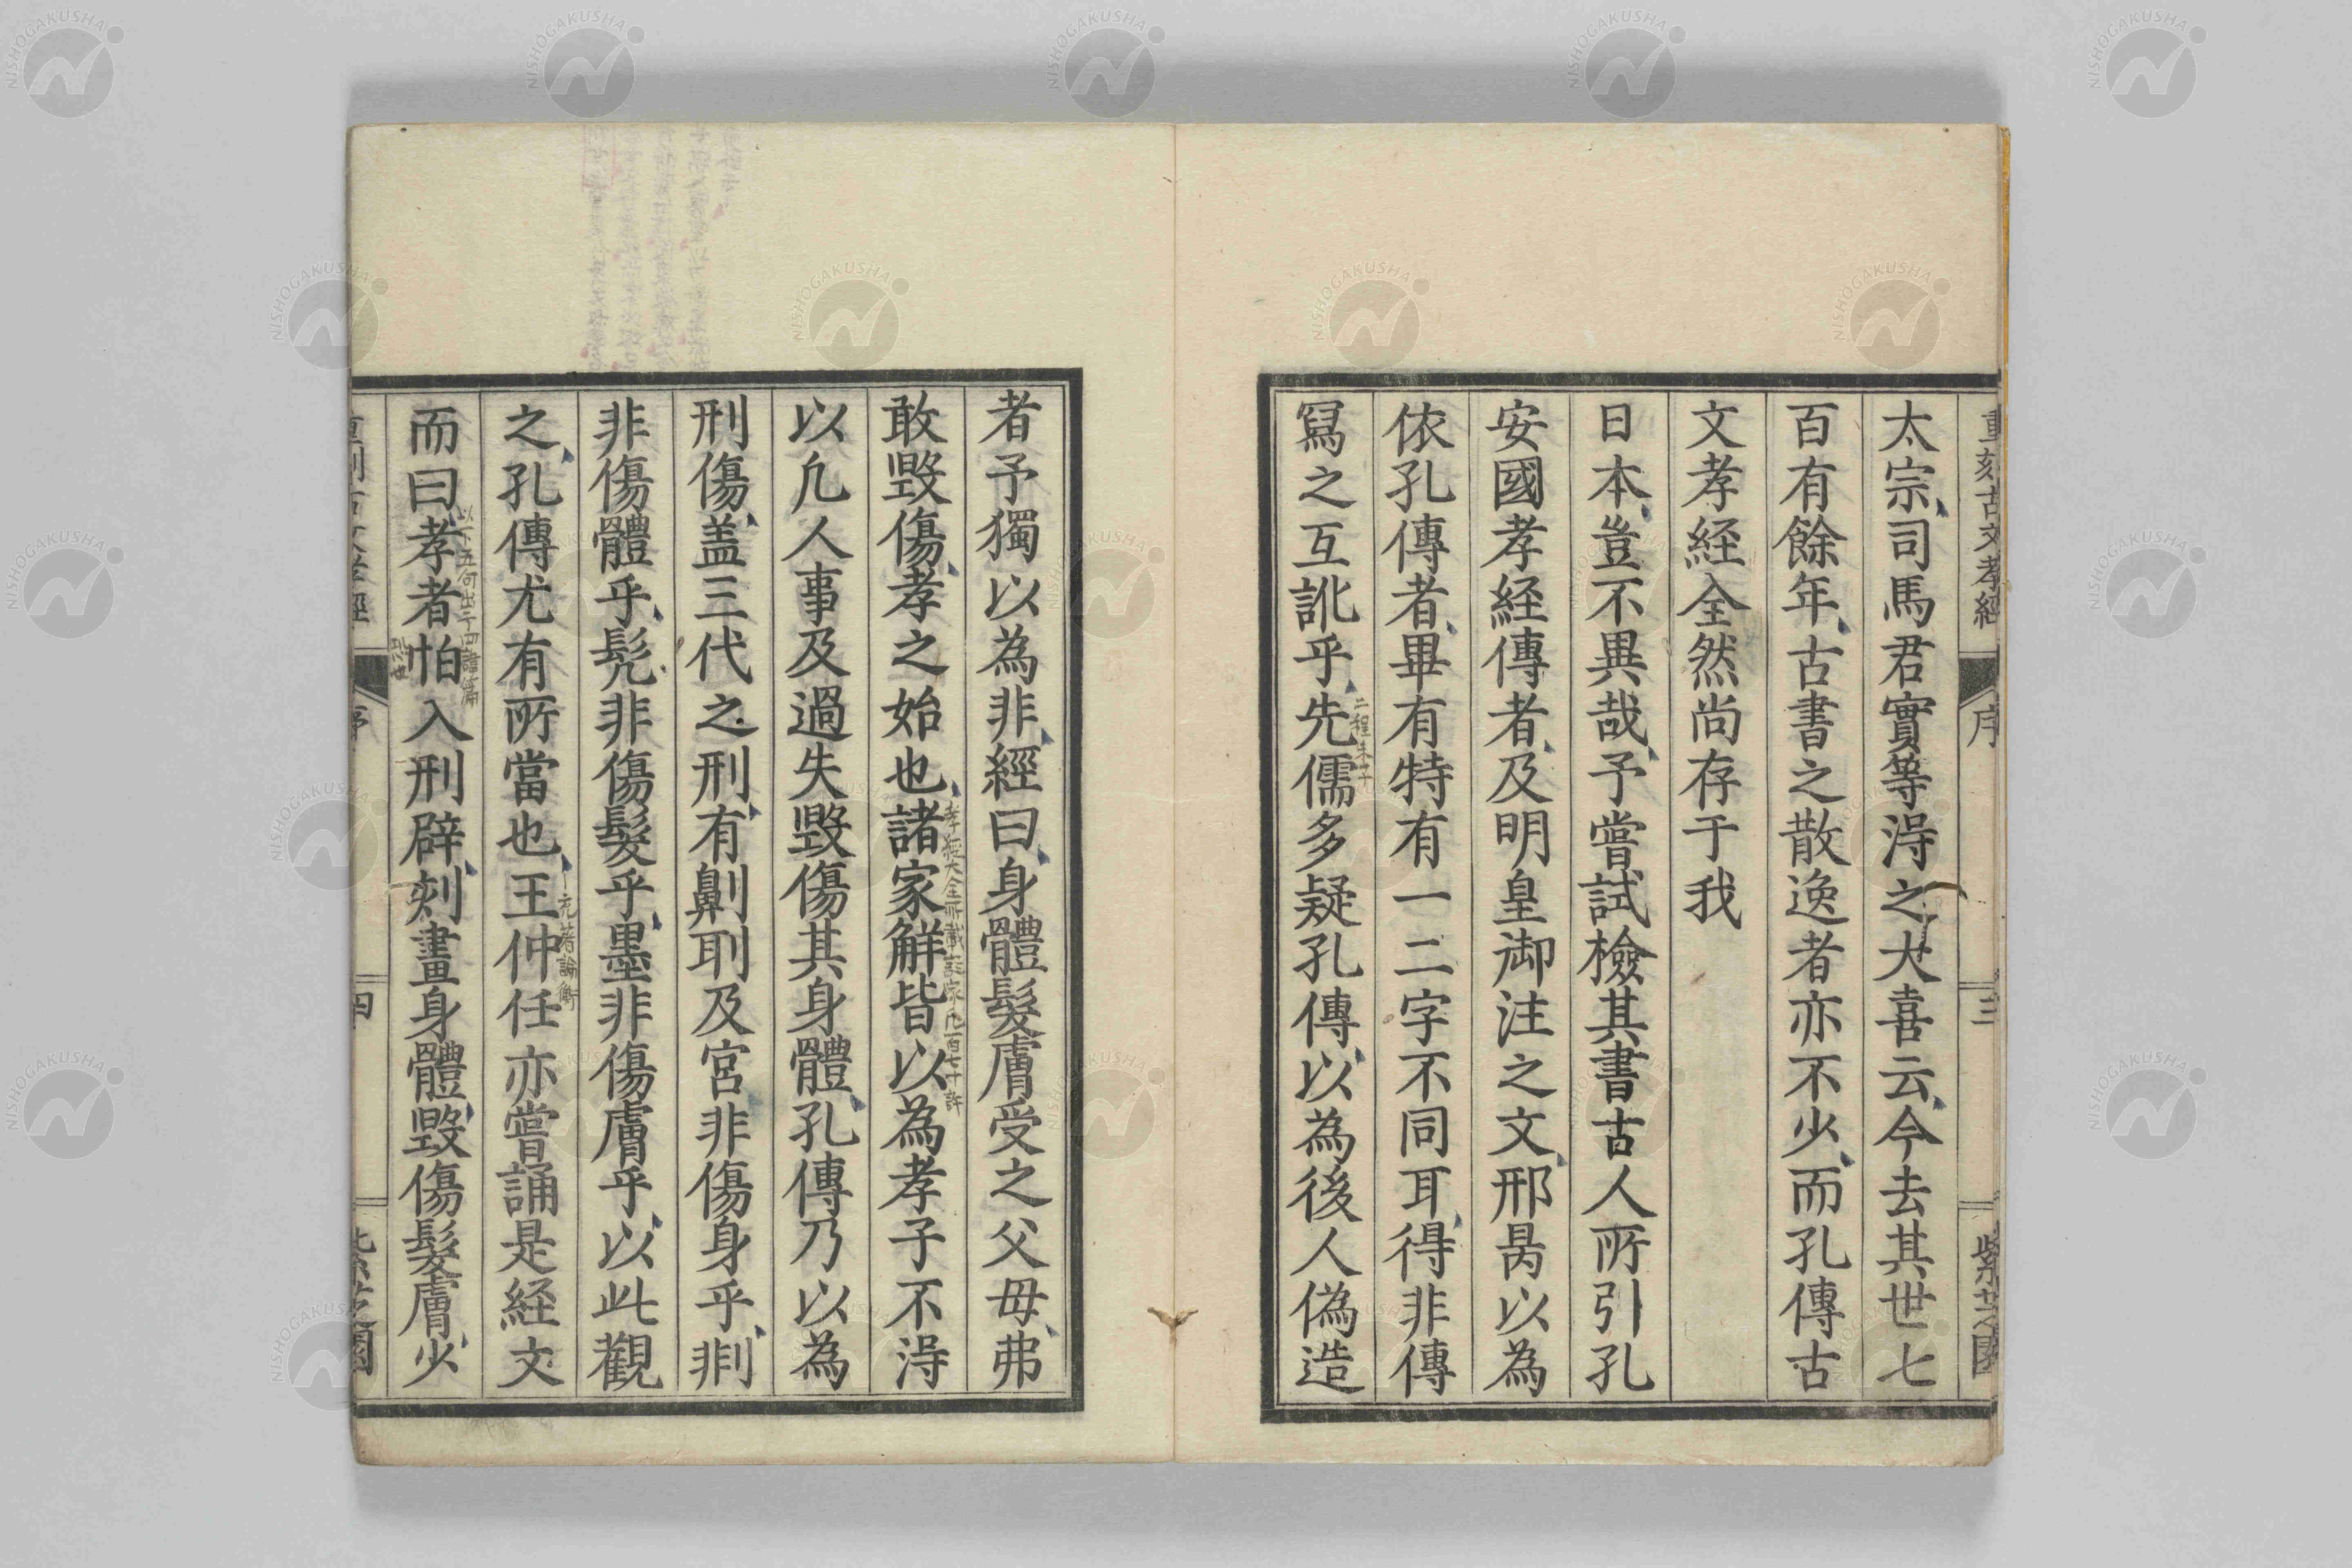 重刻古文孝經 序 三 紫芝園
太宗司馬君實等淂之大喜云今去其世七
百有餘年古書之散逸者亦不少而孔傳古
文孝経全然尚存于我
日本豈不異哉予嘗試檢其書古人所引孔
安國孝経傳者及明皇御注之文邢昺以為
依孔傳者畢有特有一二字不同耳得非傳
寫之互訛乎先儒多疑孔傳以為後人偽造
二程朱子
者予獨以為非經曰身體髮膚受之父母弗
敢毀傷孝之始也諸家解皆以為孝子不淂
孝経大全所載諸家凡百七十許
以凡人事及過失毀傷其身體孔傳乃以為
刑傷盖三代之刑有劓刵及宮非傷身乎剕
非傷體乎髠非傷髮乎墨非傷膚乎以此觀
之孔傳尤有所當也王仲任亦嘗誦是経文
充著論衡
而曰孝者怕入刑辟刻畫身體毀傷髮膚少
以下五句出于四諱篇
四